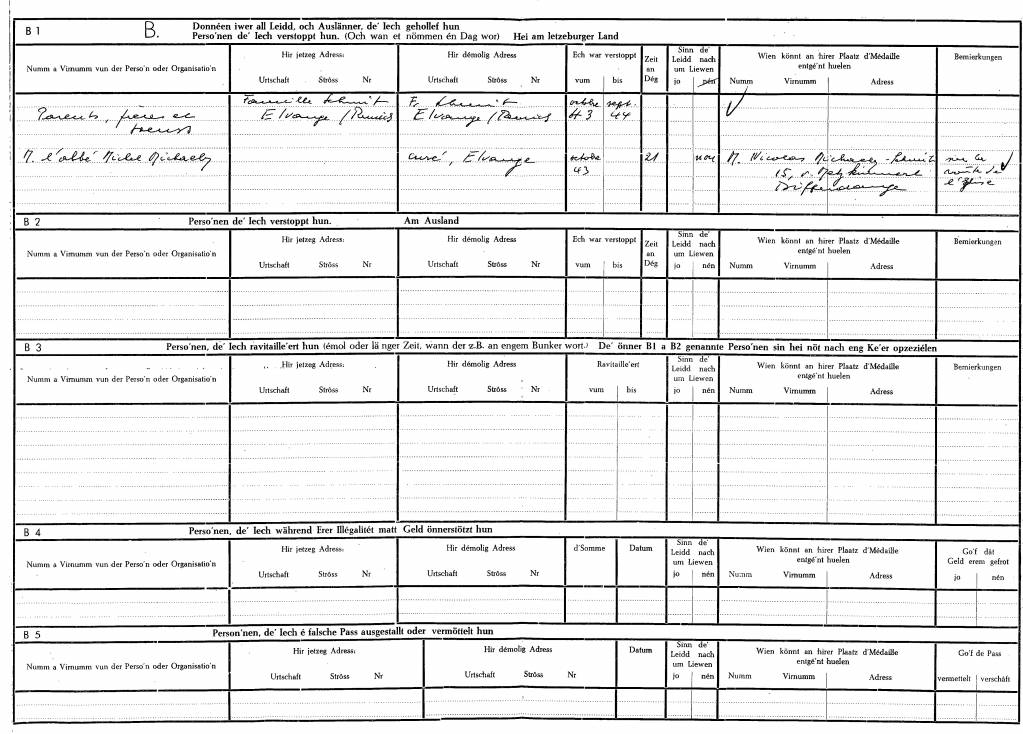 B 1 B. Donnéen iwer all Leidd, och Auslänner, de' Iech gehollef hun
Perso'nen de' Iech verstoppt hun. (Och wan et nömmen én Dag wor) Hei am letzeburger Land
Numm a Virnumm vun der Perso'n oder Organisatio'n Hir jetzeg Adress: Hir démolig Adress Ech war verstoppt Zeit an Dég Sinn de' Leidd nach um Liewen Wien könnt an hirer Plaatz d'Médaille entgé'nt huelen Bemierkungen
Urtschaft Ströss Nr Urtschaft Ströss Nr vum bis jo nén Numm Virnumm Adress
Famille Schmit F. Schmit octobre sept.
Parents, frères et Elvange / Elvange / 43 44
soeurs
M. l'abbé Michel Michaely curé, Elvange octobre 21 non M. Nicolas Michaely-Schmit sur la
43 15, r. route de
Differdange l'Eglise
B 2 Perso'nen de' Iech verstoppt hun. Am Ausland
Numm a Virnumm vun der Perso'n oder Organisatio'n Hir jetzeg Adress: Hir démolig Adress Ech war verstoppt Zeit an Dég Sinn de' Leidd nach um Liewen Wien könnt an hirer Plaatz d'Médaille entgé'nt huelen Bemierkungen
Urtschaft Ströss Nr Urtschaft Ströss Nr vum bis jo nén Numm Virnumm Adress
B 3 Perso'nen, de' Iech ravitaille'ert hun (émol oder lä nger Zeit, wann der z.B. an engem Bunker wort.) De' önner B1 a B2 genannte Perso'nen sin hei nöt nach eng Ke'er opzeziélen
Numm a Virnumm vun der Perso'n oder Organisatio'n Hir jetzeg Adress: Hir démolig Adress Ravitaille'ert Sinn de' Leidd nach um Liewen Wien könnt an hirer Plaatz d'Médaille entgé'nt huelen Bemierkungen
Urtschaft Ströss Nr Urtschaft Ströss Nr vum bis jo nén Numm Virnumm Adress
B 4 Perso'nen, de' Iech während Erer Illégalitét matt Geld önnerstötzt hun
Numm a Virnumm vun der Perso'n oder Organisatio'n Hir jetzeg Adress: Hir démolig Adress d'Somme Datum Sinn de' Leidd nach um Liewen Wien könnt an hirer Plaatz d'Médaille entgé'nt huelen Go'f dât Geld erem gefrot
Urtschaft Ströss Nr Urtschaft Ströss Nr jo nén Numm Virnumm Adress jo nén
B 5 Person'nen, de' Iech é falsche Pass ausgestallt oder vermöttelt hun
Numm a Virnumm vun der Perso'n oder Organisatio'n Hir jetzeg Adress: Hir démolig Adress Datum Sinn de' Leidd nach um Liewen Wien könnt an hirer Plaatz d'Médaille entgé'nt huelen Go'f de Pass
Urtschaft Ströss Nr Urtschaft Ströss Nr jo nén Numm Virnumm Adress vermettelt verschâft